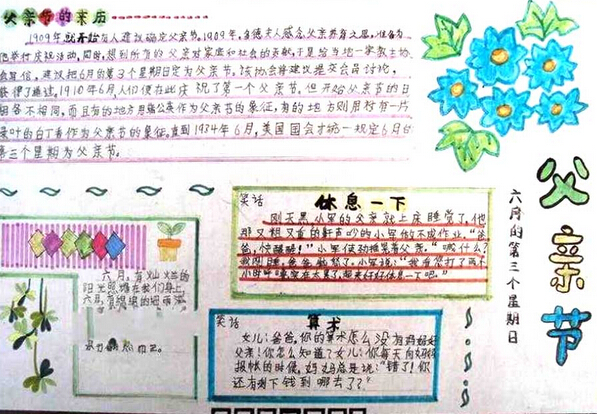 父亲节的来历
1909年就开始有人建议确定父亲节。1909年,多德夫人感念父亲养育之恩,准备为
他举行庆祝活动,同时,想到所有的父亲对家庭和社会的贡献,于是给当地一家教士协
会写信,建议把6月的第3个星期日定为父亲节。该协会将建议提交会员讨论,
获得了通过,1910年6月人们便在此庆祝了第一个父亲节。但开始父亲节的日
期各不相同,而且有的地方用蒲公英作为父亲节的象征,有的地方则用衬有一片
菜叶的白丁香作为父亲节的象征。直到1934年6月,美国国会才统一规定6月的
第三个星期为父亲节。
父亲节
六月的第三个星期日
笑话
休息一下
刚天黑,小军的父亲就上床睡觉了,他
那又粗又重的鼾声吵的小军做不成作业。“爸
爸,快醒醒!”小军使劲摇晃着父亲。
小军说:“我看您打了两个
小时呼噜实在太累了,起来好好休息一下吧。”
六月,有火山火兰的
阳光照耀在我们身上,
六月,有绵绵的细雨
笑话
算术
女儿:爸爸,你的算术怎么没有妈妈好
父亲:你怎么知道?女儿:你每天向妈妈
报帐的时候,妈妈总是说:“错了!你
还有剩下钱到哪去了?”